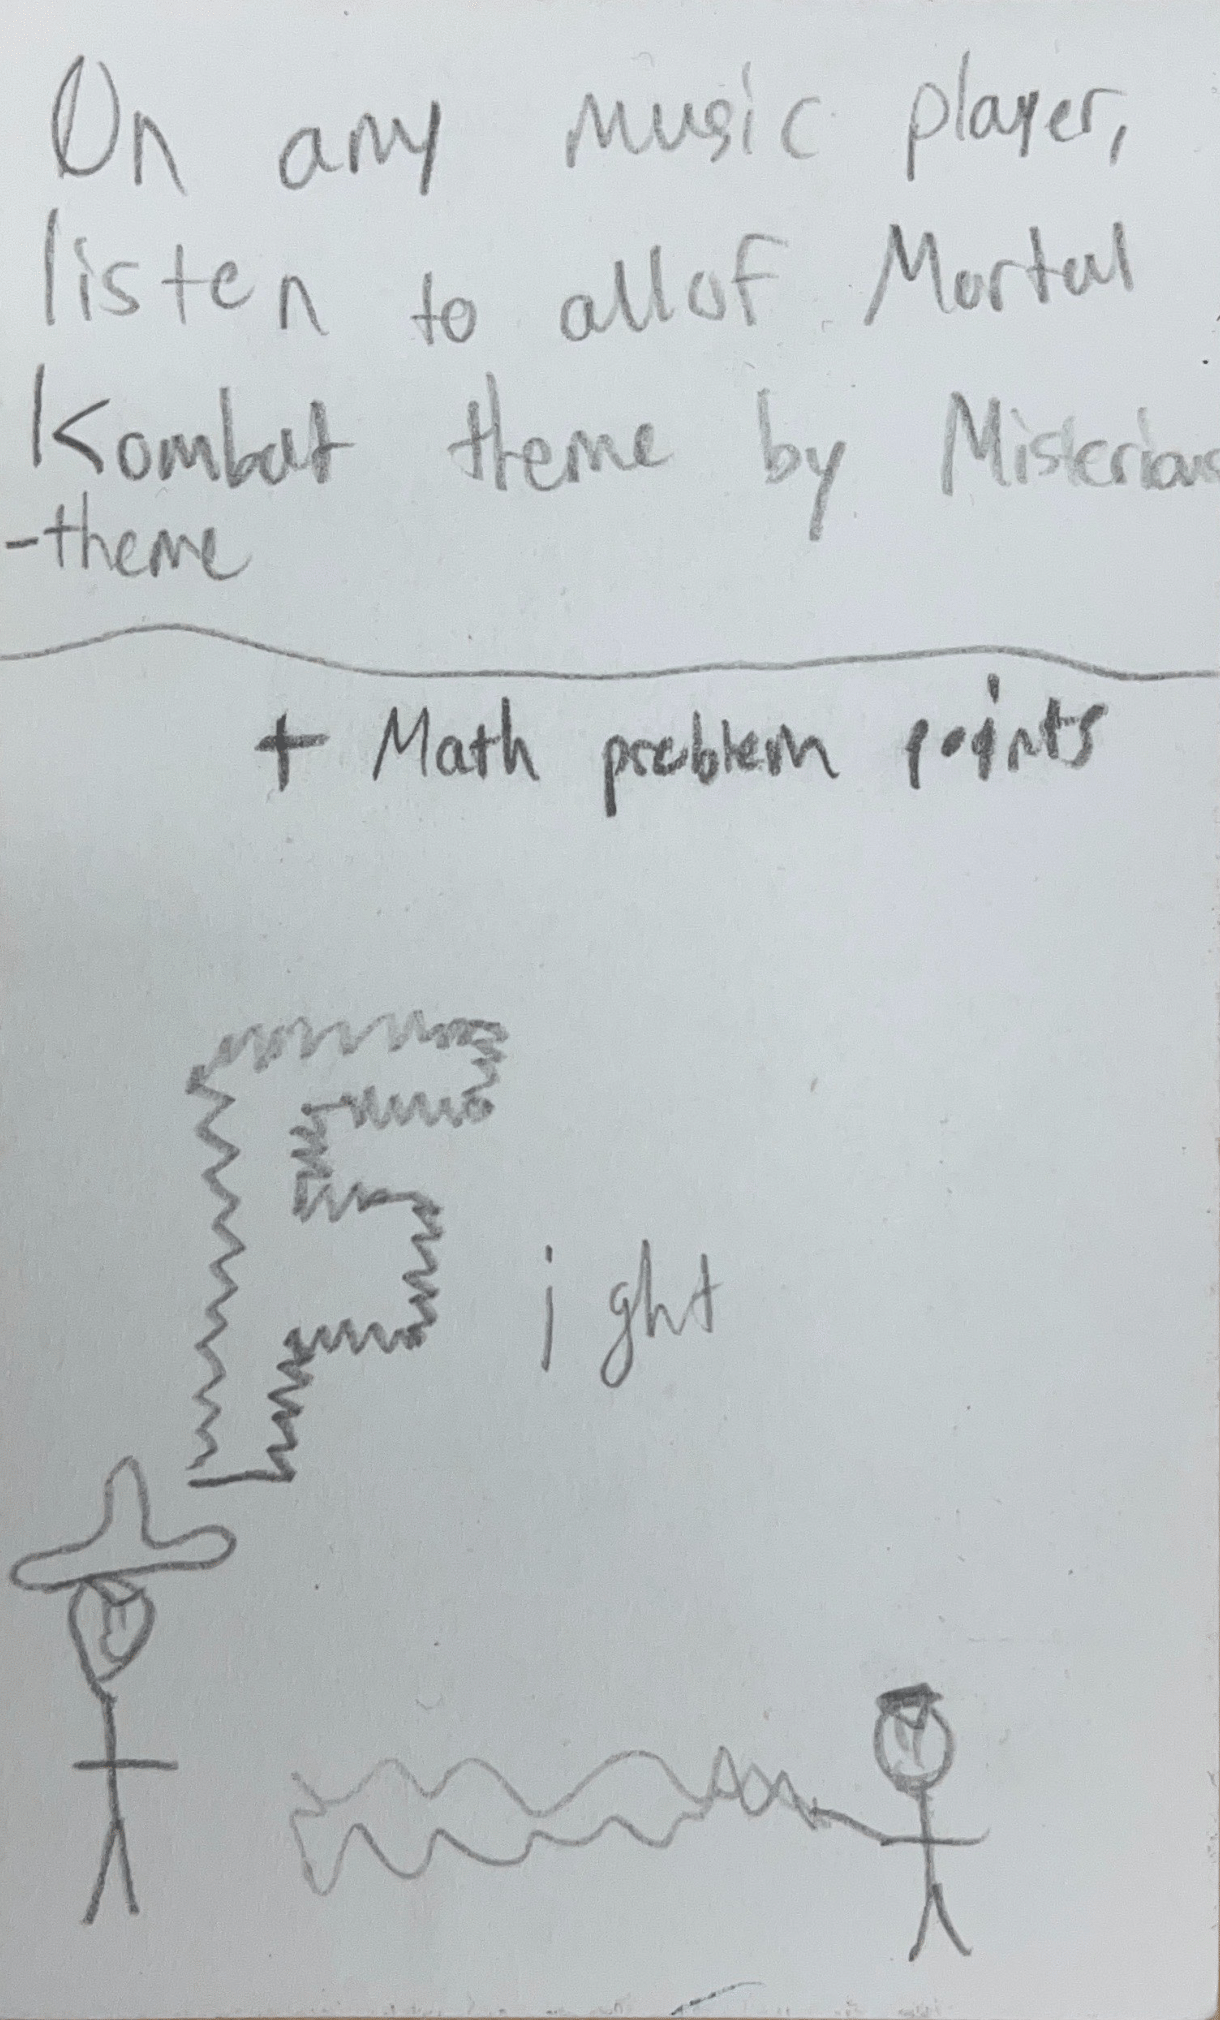 On any music player,
listen to all of Mortal
Kombat theme by Misterious
-theme
+ Math problem points
Fight